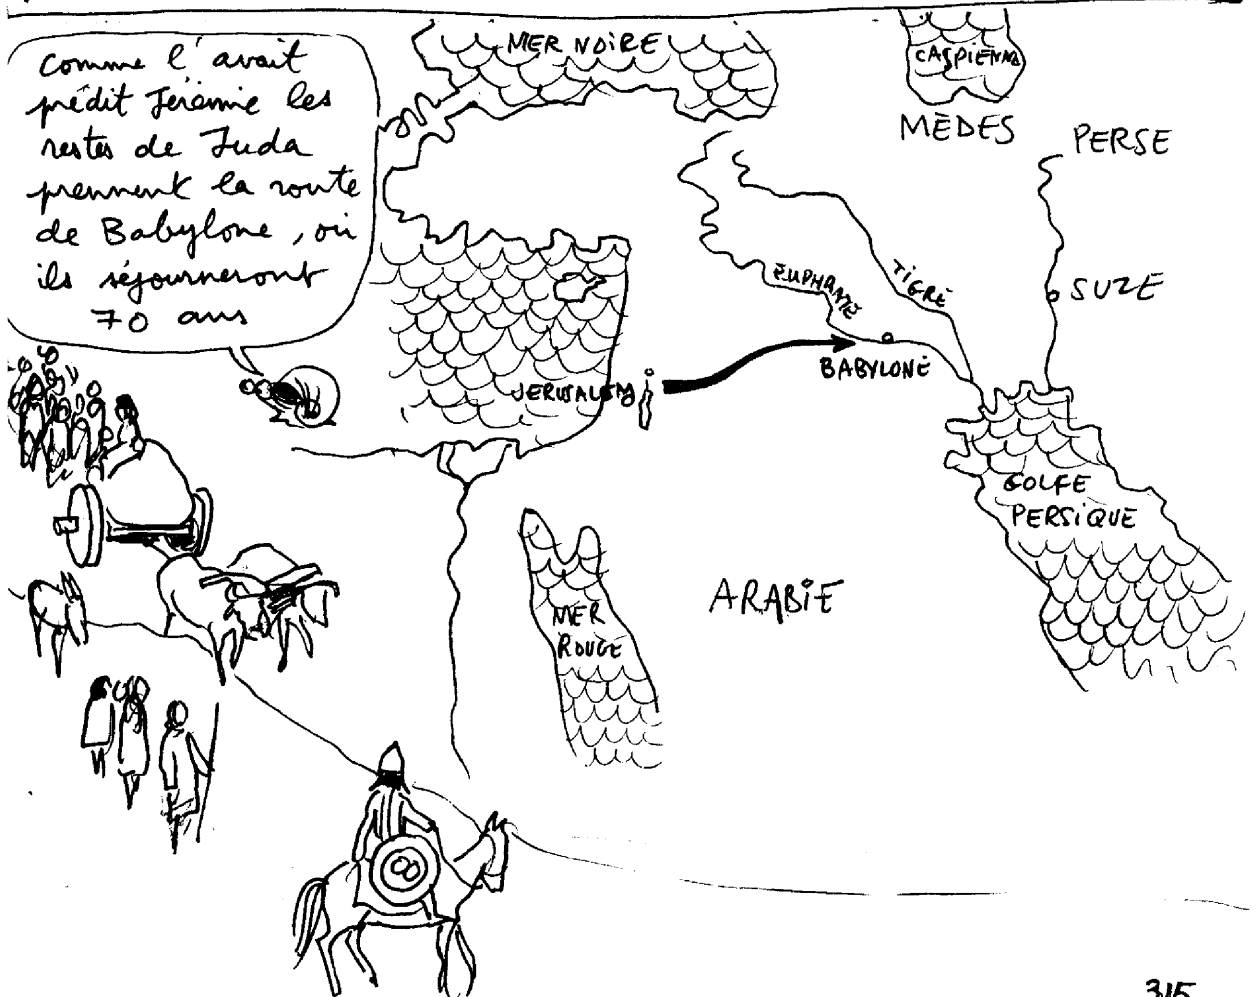 comme l'avait
prédit Jérémie les
restes de Juda
prennent la route
de Babylone, où
ils séjourneront
70 ans
MER NOIRE
CASPIENNE
MÈDES
PERSE
EUPHRATE
TIGRE
SUZE
BABYLONE
JERUSALEM
GOLFE
PERSIQUE
MER
ROUGE
ARABIE
315